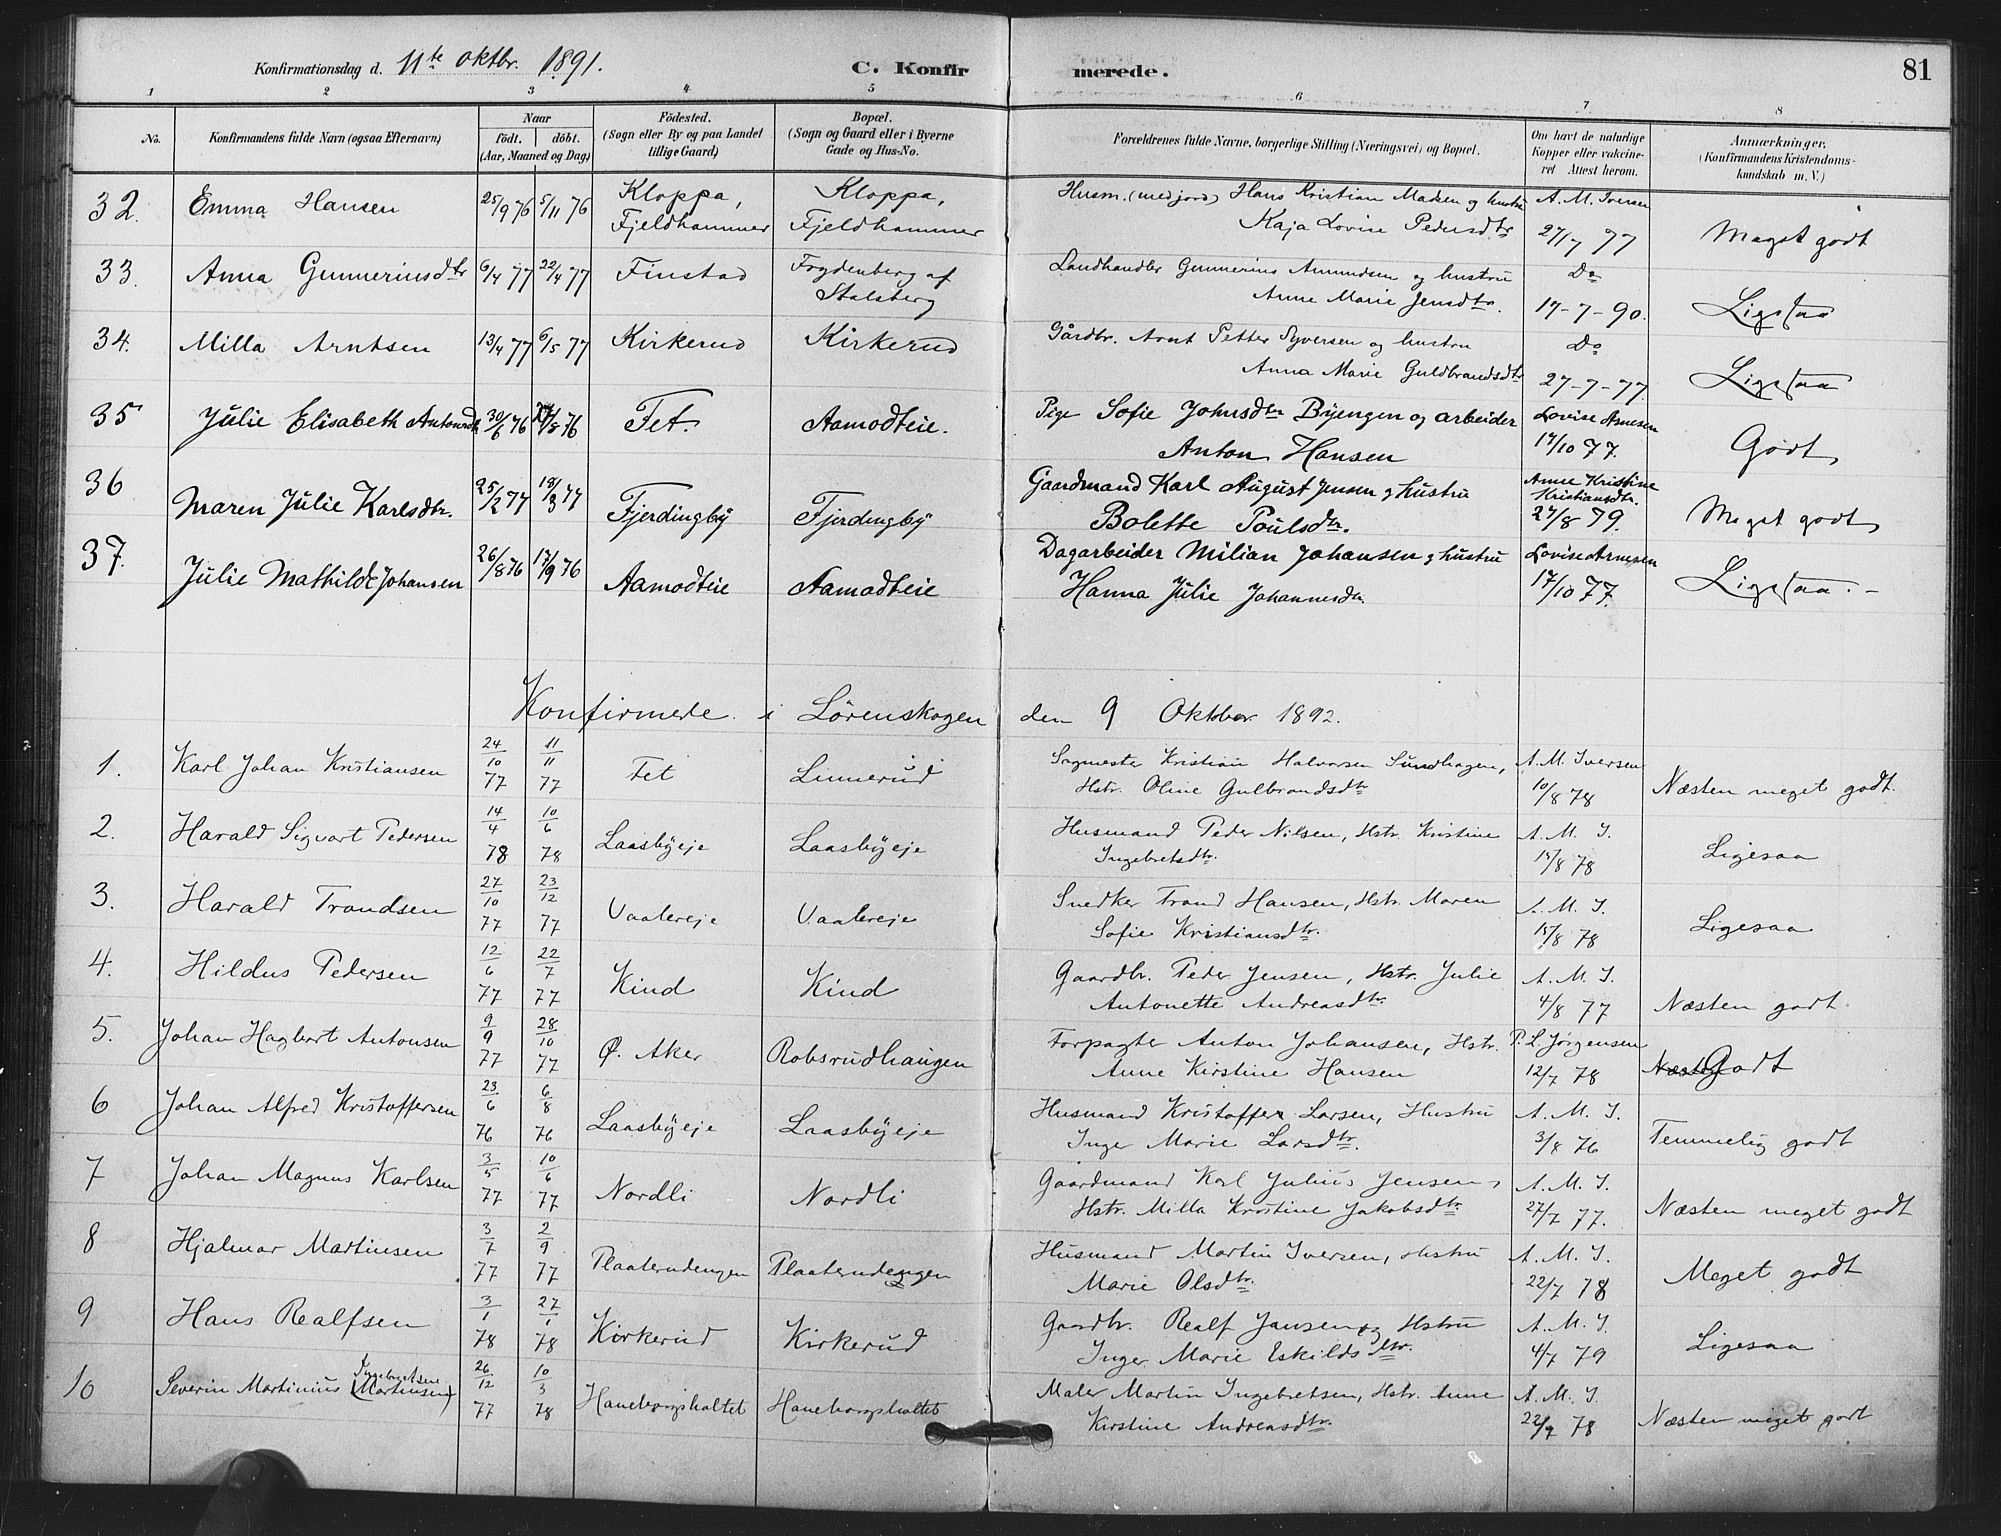 Konfirmationsdag d. 11te oktbr. 1891. C. Konfirmerede. 81
1 2 3 4 5 6 7 8
No. Konfirmandens fulde Navn (ogsaa Efternavn) Naar födt. döbt. (Aar, Maaned og Dag) Födested. (Sogn eller By og paa Landet tillige Gaard) Bopæl. (Sogn og Gaard eller i Byerne Gade og Hus-No. Forældrenes fulde Navne, borgerlige Stilling (Næringsvei) og Bopæl. Om havt de naturlige Kopper eller vakcineret Attest herom. Anmærkninger, (Konfirmandens Kristendomskundskab m. V.)
32. Emma Hansen 25/9 76 5/11 76 Kloppa, Fjeldhammer Kloppa, Fjeldhammer Husm. (med jord) Hans Kristian Madsen og hustru Kaja Lovise Pedersdtr A. M. Iversen 27/7 77 Meget godt
33. Anna Gunnerinsdtr 6/4 77 22/4 77 Finstad Frydenberg af Stalsberg Landhandler Gunnerius Amundsen og hustru Anne Marie Jensdtr. Do 17-7-90. Ligesaa
34. Milla Arntsen 13/4 77 6/5 77 Kirkerud Kirkerud Gårdbr. Arnt Petter Syversen og hustru Anna Marie Guldbrandsdtr Do 27-7-77. Ligesaa
35 Julie Elisabeth Antonsdtr 30/6 76 /8 76 Fet. Aamodteie. Pige Sofie Johnsdtr Byengen og arbeider Anton Hansen Lovise Arnesen 17/10 77. Godt
36 Maren Julie Karlsdtr. 25/2 77 18/3 77 Fjerdingby Fjerdingby Gaardmand Karl August Jensen og hustru Bolette Poulsdtr. Anne Kristine Kristiansdtr. 27/8 79. Meget godt
37. Julie Mathilde Johansen 26/8 76 17/9 76 Aamodteie Aamodteie Dagarbeider Milian Johansen og hustru Hanna Julie Johannesdtr. Lovise Arnesen 17/10 77. Ligesaa. -
Konfirmerede i Lörenskogen den 9 Oktober 1892.
1. Karl Johan Kristiansen 24/10 77 11/11 77 Fet Linnerud Sagmester Kristian Halvorsen Sundhagen, Hstr. Oline Gulbrandsdtr A. M. Iversen 10/8 78 Næsten meget godt.
2. Harald Sigvart Pedersen 14/4 78 10/6 78 Laasbyeje Laasbyeje Husmand Peder Nilsen, Hstr. Kristine Ingebretsdtr. A. M. I. 15/8 78 Ligesaa
3. Harald Trondsen 27/10 77 23/12 77 Vaalereje Vaalereje Snedker Trond Hansen, Hstr. Maren Sofie Kristiansdtr. A. M. I. 15/8 78 Ligesaa
4. Hildus Pedersen 12/6 77 22/7 77 Kind Kind Gaardbr. Peder Jensen, Hstr. Julie Antonette Andreasdtr. A. M. I. 4/8 77 Næsten godt
5. Johan Hagbart Antonsen 9/9 77 28/10 77 Ø. Aker Robsrudhaugen Forpagter Anton Johansen, Hstr. Anne Kirstine Hansen P. L. Jørgensen 12/7 78 Næsten Godt
6 Johan Alfred Kristoffersen 23/6 76 6/8 76 Laasbyeje Laasbyeje Husmand Kristoffer Larsen, Hustru Inge Marie Larsdtr. A. M. I. 3/8 76 Temmelig godt
7 Johan Magnus Karlsen 3/5 77 10/6 77 Nordli Nordli Gaardmand Karl Julius Jensen, Hstr. Milla Kristine Jakobsdtr. A. M. I. 27/7 77. Næsten meget godt
8 Hjalmar Martinsen 3/7 77 2/9 77 Plaaterudengen Plaaterudengen Husmand Martin Iversen, Hstru Marie Olsdtr. A. M. I. 22/7 78 Meget godt
9 Hans Realfsen 3/1 78 27/1 78 Kirkerud Kirkerud Gaardbr. Realf Jansen og Hstru Inger Marie Eskildsdtr. A. M. I. 4/7 79 Ligesaa
10 Severin Martinius Ingebretsen (Martinsen) 26/12 77 10/3 78 Haneborgsholtet Haneborgsholtet Maler Martin Ingebretsen, Hstr. Anne Kirstine Andreasdtr. A. M. I. 22/9 78 Næsten meget godt